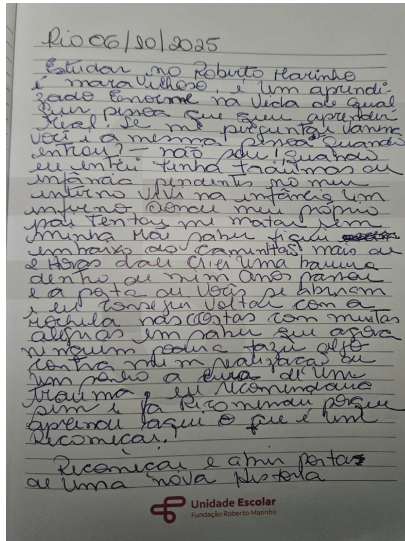 Rio 06/10/2025
Estudar no Roberto Marinho
é maravilhoso, é um aprendi-
zado Enorme na vida de qual
quer pessoa que quer aprender
Se me perguntar Vanina
você é a mesma pessoa quando
entrou? - não sou! Quando
eu entrei tinha traumas da
infância pendentes no meu
interno vivi na infância um
inferno Onde meu próprio
pai tentou me matar e
minha mãe saber fiquei
embaixo da cama mais ou
2 Horas dali criei uma
dentro de mim anos
e a porta de vocês se abriram
e eu consegui voltar com a
mochila nas costas com muitas
alegrias em saber que agora
ninguém podia fazer algo
contra mim realização de
um sonho a cura de um
trauma, eu recomendaria
sim e já recomendei porque
aprendi aqui o que é um
Recomeçar.
Recomeçar é abrir portas
de uma nova história
Unidade Escolar
Fundação Roberto Marinho